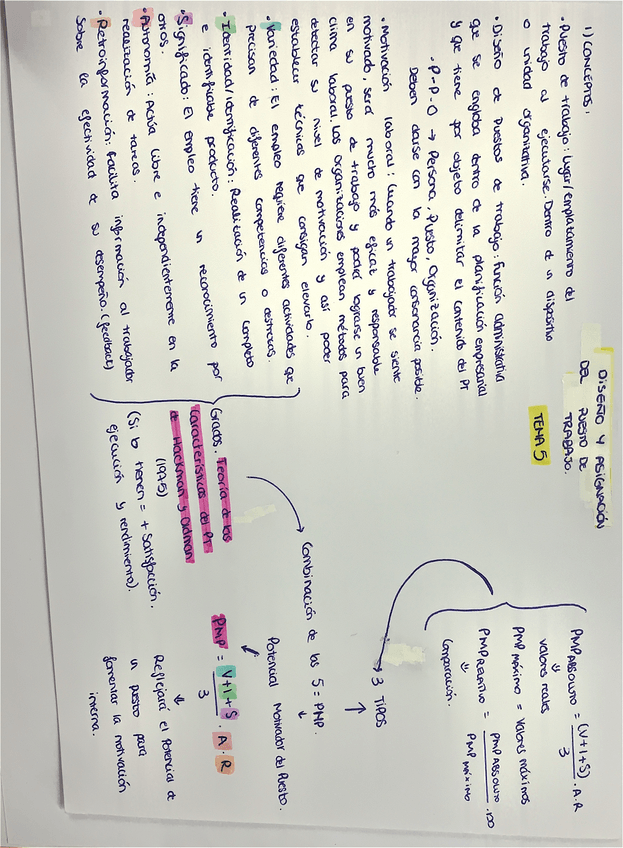 DISEÑO Y ASIGNACIÓN
DEL PUESTO DE
TRABAJO.
TEMA 5
1) CONCEPTOS:
· Puesto de trabajo: lugar/emplazamiento del
trabajo al ejecutarse. Dentro de un dispositivo
o unidad organizativa.
· Diseño de Puestos de trabajo: función administrativa
que se engloba dentro de la planificación empresarial
y que tiene por objeto delimitar el contenido del PT
· P-P-O → Persona, Puesto, Organización.
Deben darse con la mayor consonancia posible.
· Motivación laboral: cuando un trabajador se siente
motivado, será mucho más eficaz y responsable
en su puesto de trabajo y podrá lograrse un buen
clima laboral. Las organizaciones emplean métodos para
detectar su nivel de motivación y así poder
establecer técnicas que consigan elevarlo.
· Variedad: El empleo requiere diferentes actividades que
precisan de diferentes competencias o destrezas.
· Identidad/identificación: Realización de un completo
e identificable producto.
· Significado: El empleo tiene un reconocimiento por
otros.
· Autonomía: Actúa libre e independientemente en la
realización de tareas.
· Retroinformación: facilita información al trabajador
sobre la efectividad de su desempeño. (feedback)
Grados. Teoría de las
Características del PT
de Hackman y Oldman
(1975)
(Si lo tienen = + Satisfacción,
ejecución y rendimiento).
Combinación de las 5 = PMP.
↓
Potencial Motivador del Puesto.
PMP = (V+I+S) / 3 · A · R
↓
Reflejará el potencial de
un puesto para
fomentar la motivación
interna.
→ 3 TIPOS
PMP ABSOLUTO = (V+I+S) / 3 · A · R
↓
valores reales
PMP máximo = Valores máximos
PMP RELATIVO = PMP ABSOLUTO / PMP MÁXIMO · 100
↓
Comparación.